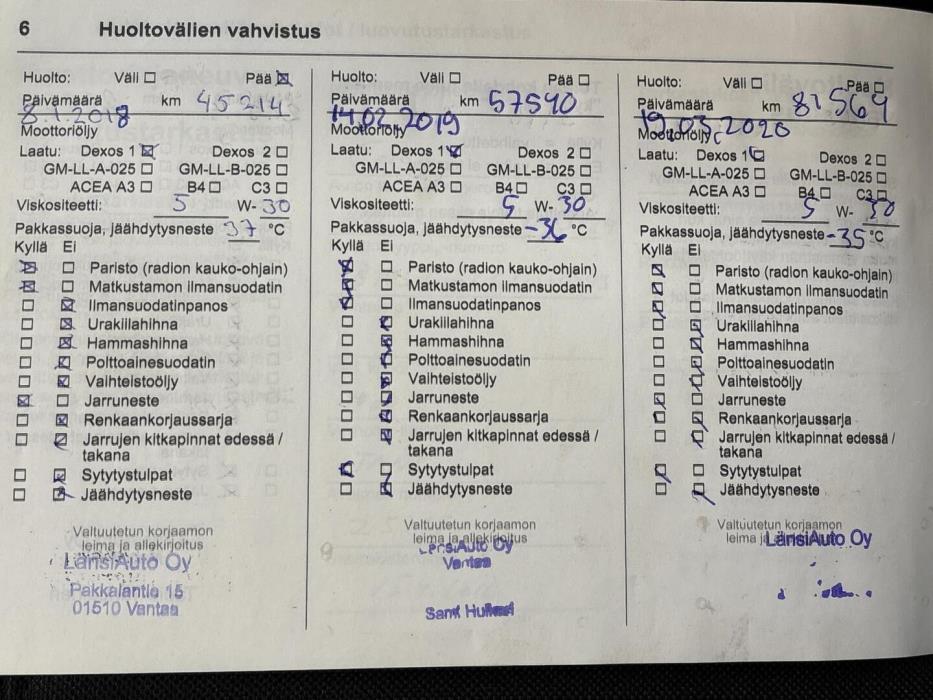 6 Huoltovälien vahvistus
Huolto: Väli ☐ Pää ☒
Päivämäärä km 45214
8.1.2018
Moottoriöljy
Laatu: Dexos 1 ☒ Dexos 2 ☐
GM-LL-A-025 ☐ GM-LL-B-025 ☐
ACEA A3 ☐ B4 ☐ C3 ☐
Viskositeetti: 5 W- 30
Pakkassuoja, jäähdytysneste 37 °C
Kyllä Ei
☒ ☐ Paristo (radion kauko-ohjain)
☒ ☐ Matkustamon ilmansuodatin
☐ ☒ Ilmansuodatinpanos
☐ ☒ Urakiilahihna
☐ ☒ Hammashihna
☐ ☒ Polttoainesuodatin
☐ ☒ Vaihteistoöljy
☒ ☐ Jarruneste
☐ ☒ Renkaankorjaussarja
☐ ☒ Jarrujen kitkapinnat edessä /
takana
☐ ☒ Sytytystulpat
☐ ☒ Jäähdytysneste
Valtuutetun korjaamon
leima ja allekirjoitus
LänsiAuto Oy
Pakkalantie 15
01510 Vantaa
Huolto: Väli ☐ Pää ☐
Päivämäärä km 57540
14.02.2019
Moottoriöljy
Laatu: Dexos 1 ☒ Dexos 2 ☐
GM-LL-A-025 ☐ GM-LL-B-025 ☐
ACEA A3 ☐ B4 ☐ C3 ☐
Viskositeetti: 5 W- 30
Pakkassuoja, jäähdytysneste -36 °C
Kyllä Ei
☒ ☐ Paristo (radion kauko-ohjain)
☒ ☐ Matkustamon ilmansuodatin
☒ ☐ Ilmansuodatinpanos
☐ ☒ Urakiilahihna
☐ ☒ Hammashihna
☐ ☒ Polttoainesuodatin
☐ ☒ Vaihteistoöljy
☐ ☒ Jarruneste
☐ ☒ Renkaankorjaussarja
☐ ☒ Jarrujen kitkapinnat edessä /
takana
☒ ☐ Sytytystulpat
☐ ☒ Jäähdytysneste
Valtuutetun korjaamon
leima ja allekirjoitus
LänsiAuto Oy
Vantaa
Huolto: Väli ☐ Pää ☐
Päivämäärä km 81569
19.03.2020
Moottoriöljy
Laatu: Dexos 1 ☒ Dexos 2 ☐
GM-LL-A-025 ☐ GM-LL-B-025 ☐
ACEA A3 ☐ B4 ☐ C3 ☐
Viskositeetti: 5 W- 30
Pakkassuoja, jäähdytysneste -35 °C
Kyllä Ei
☒ ☐ Paristo (radion kauko-ohjain)
☒ ☐ Matkustamon ilmansuodatin
☒ ☐ Ilmansuodatinpanos
☐ ☒ Urakiilahihna
☐ ☒ Hammashihna
☐ ☒ Polttoainesuodatin
☐ ☒ Vaihteistoöljy
☒ ☐ Jarruneste
☐ ☒ Renkaankorjaussarja
☐ ☒ Jarrujen kitkapinnat edessä /
takana
☒ ☐ Sytytystulpat
☐ ☒ Jäähdytysneste
Valtuutetun korjaamon
leima LänsiAuto Oy